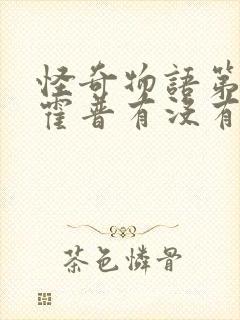 怪奇物語第
霍普有沒有
茶色憐骨